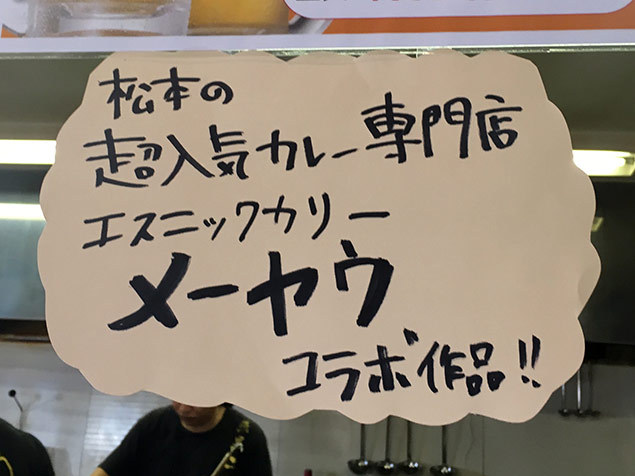 松本の
超入気カレー専門店
エスニックカリー
メーヤウ
コラボ作品!!